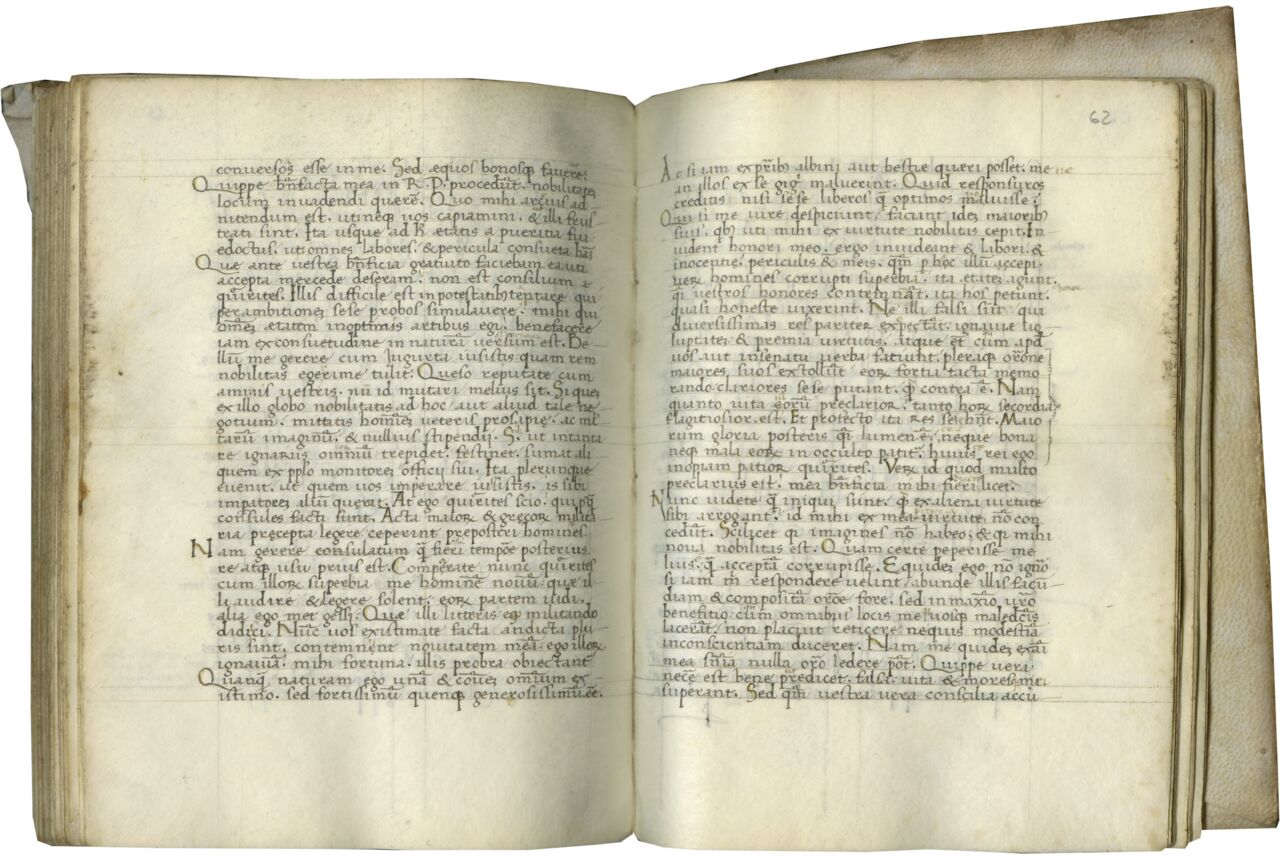 conversos esse in me. Sed æquos bonosq; favere.
Quippe bn̄facta mea in R. P. procedūt. nobilitatē
locum invadendi querē. Quo mihi acrius ad
nitendum est. ut neq; vos capiamini. & illi frus
trati sint. Ita usque ad h̄ etatis a pueritia fui
edoctus. ut omnes labores. & pericula consueta hāc
Que ante vestra bn̄ficia gratuito faciebam ea uti
accepta mercede deseram. non est consilium
quirites. Illis difficile est in potestatib; teptare qui
per ambitionez sese probos simulavere. mihi qui
omēz ætatem in optimis artibus egi. benefacere
iam ex consuetudine in naturā versum est. Be
llū me gerere cum Jugurta iusistis quam rem
nobilitas egerime tulit. Queso reputate cum
animis vestris. nū id mutari melius sit. Si quez
ex illo globo nobilitatis ad hoc aut aliud tale ne
gotium. mittatis hominez veteris prosapie. ac ml̄
tarū imaginū. & nullius stipendii. S. ut in tanta
re ignarus omniū trepidet. festinet. sumat ali
quem ex pplo monitorez officii sui. Ita plerunque
evenit. ut quem vos imperare iusistis. is sibi
impatorez aliū querat. At ego quirites scio. qui pq̄
consules facti sunt. Acta maior & grecor milita
ria precepta legere ceperint preposteri homines.
Nam gerere consulatum q̄ fieri tempōe posterius.
re atq; usu prius est. Comperate nunc quirites
cum illor superbia me hominē novū. que il
li audire & legere solent. eor partem vidi.
alia ego met gessi. Que illi litteris eg militando
didici. Nūc vos existimate facta an dicta plu
ris sint. contemnent novitatem meā. ego illor
ignaviā. mihi fortuna. illis probra obiectant
Quanq naturam ego unā & cōuez omnium ex
istimo. sed fortissimū quenq; generosissimū eē.
62
Ac si iam ex prib; albini aut bestie queri posset. me ne
an illos ex se gigi maluerint. Quid responsuros
creditis nisi sese liberos q̄ optimos maluisse?
Qui si me iure despiciunt. faciunt idez maiorib;
suis. qb; uti mihi ex virtute nobilitas cepit. In
vident honori meo. ergo invideant & labori. &
inocentie. periculis & meis. qm̄ p hoc illū accepi.
verz homines corrupti superbia. ita etatez agunt.
q̄i vestros honores contemnāt. ita hos petunt. honor
quasi honeste vixerint. Ne illi falsi sint. qui
diversissimas res pariter expectāt. ignavie
luptatez & premia virtutis. atque et cūm apd
vos aut in senatu verba faciunt. pleraq; orōne
maiores. suos extollūt. eor fortia facta memo
rando clariores sese putant. q̄ contra ē. Nam
quanto vita eorū preclarior. tanto hor secordia
flagitiosior. est. Et profecto ita res se h̄nt. Maio
rum gloria posteris q̄i lumen ē. neque bona
neq; mala eor in occulto patit. huius rei ego
inopiam patior quirites. Verz id quod multo
preclarius est. mea bn̄facta mihi fieri licet.
Nunc videte q̄ iniqui sunt. q̄ ex aliena virtute
sibi arrogant. id mihi ex mea virtute nō con
cedūt. Scilicet qi imagines nō habeo. & qi mihi
nova nobilitas est. Quam certe peperisse me
lius. q̄ acceptā corrupisse. Equidez ego nō ignō
si iam m respondere velint. abunde illis facū
diam & compositā orōe fore. sed in maxīo vrō
benefitio. cūm omnibus locis me vosq; maledcīs
lacerāt. non placuit reticere. ne quis modestiā
in conscientiam duceret. Nam me quidez ex aī
mea sn̄ia nulla orō ledere pōt. Quippe vera
necē est bene predicet. falsa. vita & mores mei
superant. Sed qm̄ vestra vera conscilia accū